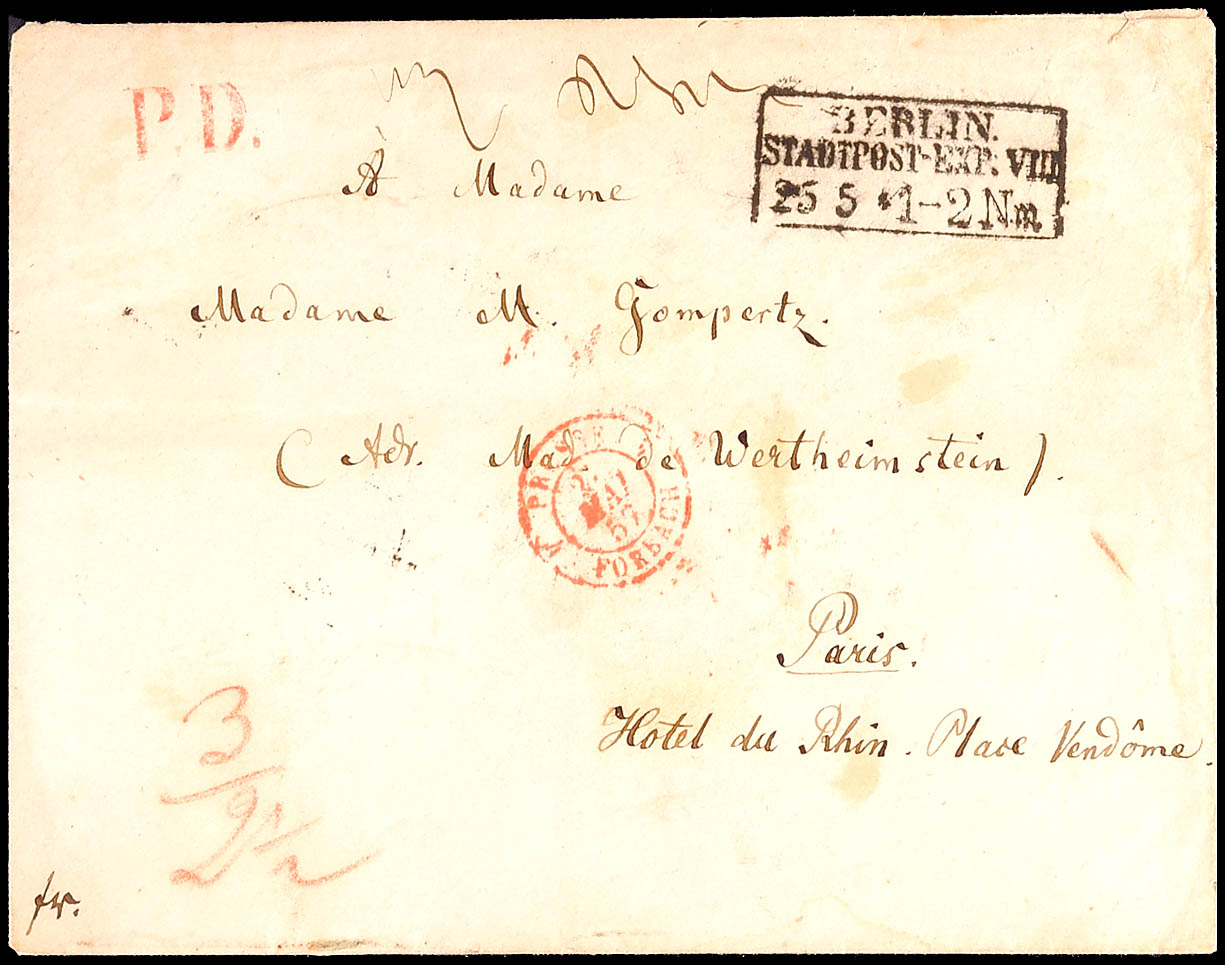 P.D.
BERLIN.
STADTPOST-EXP: VIII
25 5 *1-2 Nm.
A Madame
Madame M. Gompertz.
(Adr. Mad. de Wertheimstein).
PRUSSE
MAI
57
FORBACH
Paris.
Hôtel du Rhin. Place Vendôme.
3
2 1/2
fr.